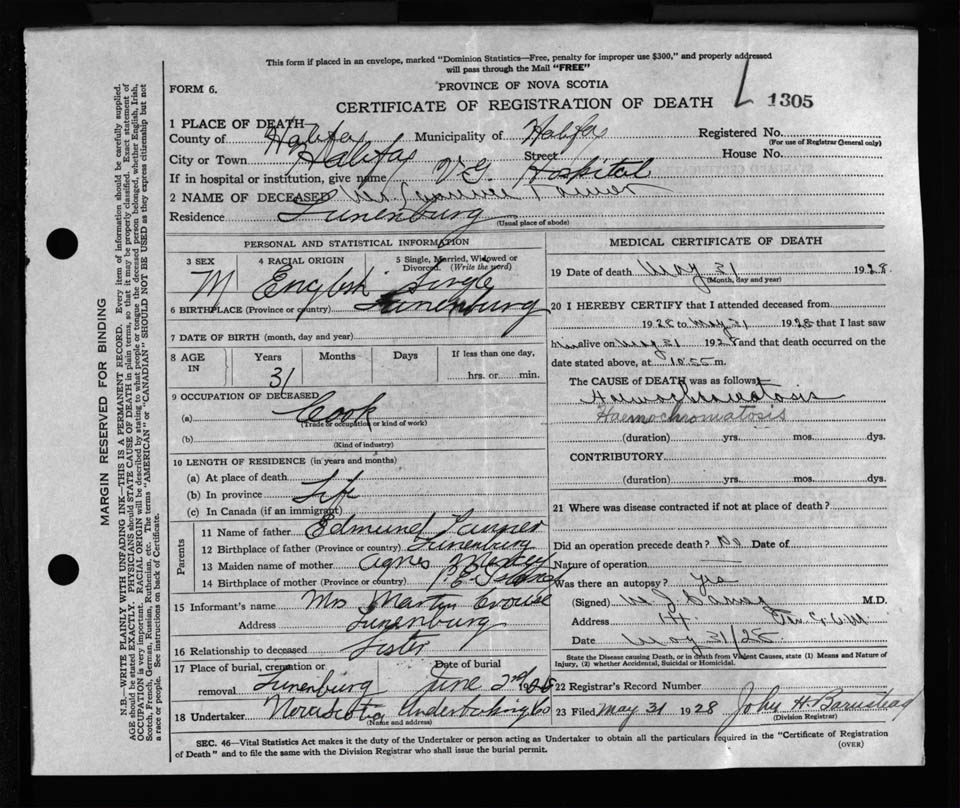 This form if placed in an envelope, marked "Dominion Statistics—Free, penalty for improper use $300," and properly addressed
will pass through the Mail "FREE"
FORM 6.
PROVINCE OF NOVA SCOTIA
CERTIFICATE OF REGISTRATION OF DEATH
1305
1 PLACE OF DEATH
County of Halifax Municipality of Halifax Registered No.
(For use of Registrar General only)
City or Town Halifax Street House No.
If in hospital or institution, give name V.G. Hospital
2 NAME OF DECEASED
Residence Lunenburg
(Usual place of abode)
PERSONAL AND STATISTICAL INFORMATION
3 SEX 4 RACIAL ORIGIN 5 Single, Married, Widowed or
Divorced. (Write the word)
M English Single
6 BIRTHPLACE (Province or country) Lunenburg
7 DATE OF BIRTH (month, day and year)
8 AGE IN Years Months Days If less than one day,
31 hrs. or min.
9 OCCUPATION OF DECEASED
(a) Cook
(Trade or occupation or kind of work)
(b)
(Kind of industry)
10 LENGTH OF RESIDENCE (in years and months)
(a) At place of death
(b) In province Life
(c) In Canada (if an immigrant)
Parents
11 Name of father Edmund
12 Birthplace of father (Province or country) Lunenburg
13 Maiden name of mother Agnes
14 Birthplace of mother (Province or country)
15 Informant's name Mrs Martin Crouse
Address Lunenburg
16 Relationship to deceased Sister
17 Place of burial, cremation or Date of burial
removal Lunenburg June 2nd 1928
18 Undertaker Nova Scotia Undertaking Co
(Name and address)
MEDICAL CERTIFICATE OF DEATH
19 Date of death May 31 1928
(Month, day and year)
20 I HEREBY CERTIFY that I attended deceased from
1928 to May 31 1928 that I last saw
him alive on May 31 1928 and that death occurred on the
date stated above, at 10:55 m.
The CAUSE of DEATH was as follows
Haemochromatosis
Haemochromatosis
(duration) yrs. mos. dys.
CONTRIBUTORY
(duration) yrs. mos. dys.
21 Where was disease contracted if not at place of death?
Did an operation precede death? No Date of
Nature of operation —
Was there an autopsy? Yes
(Signed) M.D.
Address
Date May 31/28
State the Disease causing Death, or in Death from Violent Causes, state (1) Means and Nature of
Injury, (2) whether Accidental, Suicidal or Homicidal.
22 Registrar's Record Number
23 Filed May 31 1928 John H. Barnstead
(Division Registrar)
SEC. 46—Vital Statistics Act makes it the duty of the Undertaker or person acting as Undertaker to obtain all the particulars required in the "Certificate of Registration
of Death" and to file the same with the Division Registrar who shall issue the burial permit.
(OVER)
MARGIN RESERVED FOR BINDING
N.B.—WRITE PLAINLY WITH UNFADING INK—THIS IS A PERMANENT RECORD. Every item of information should be carefully supplied.
AGE should be stated EXACTLY. PHYSICIANS should STATE CAUSE OF DEATH in plain terms, so that it may be properly classified. Exact statement of
OCCUPATION is very important. RACIAL ORIGIN will be described by stating to what people or tongue the deceased person belonged, whether English, Irish,
Scotch, French, German, Russian, Ruthenian, etc. The terms "AMERICAN" or "CANADIAN" SHOULD NOT BE USED as they express citizenship but not
a race or people. See instructions on back of Certificate.